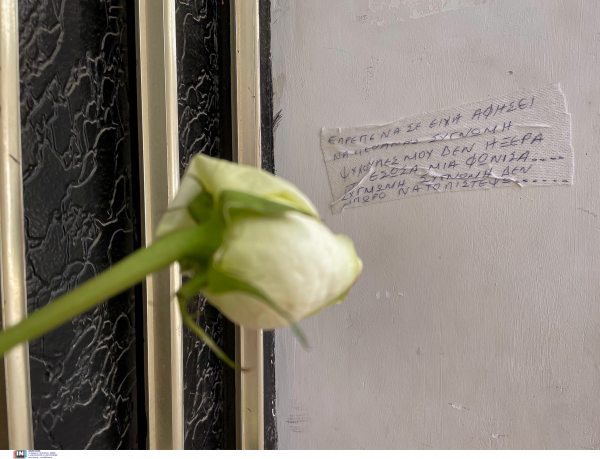 ΕΠΡΕΠΕ ΝΑ ΣΕ ΕΙΧΑ ΑΦΗΣΕΙ
ΝΑ ΠΕΘΑΝΕΙΣ ΣΥΓΝΩΜΗ
ΨΥΧΟΥΛΕΣ ΜΟΥ ΔΕΝ ΗΞΕΡΑ
ΕΣΩΣΑ ΜΙΑ ΦΩΝΙΣΑ....
ΣΥΓΝΩΜΗ, ΣΥΓΝΩΜΗ ΔΕΝ
ΜΠΩΡΟ ΝΑ ΤΟ ΠΙΣΤΕΨΩ.....
IN